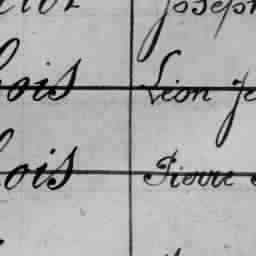 Joseph
ois Léon Je
ois Pierre